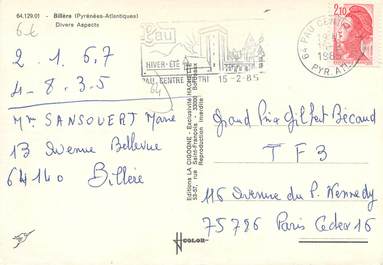 64.129.01 - Billère (Pyrénées-Atlantiques)
Divers Aspects
6€
2. 1. 6. 7
4 - 8. 3. 5
64
Mme SANSOUERT Marie
13 Avenue Bellevue
64140 Billère
Pau
HIVER-ÉTÉ
PAU, CENTRE
15-2-85
64 PAU
PYR. AT
2,10
Editions LA CIGOGNE - Exclusivité HACHETTE
53-57, rue Saint-François - 33000 Bordeaux
Reproduction interdite
COLOR
Grand Prix Gilbert Bécaud
T F 3
116 Avenue du P. Kennedy
75796 Paris Cedex 16